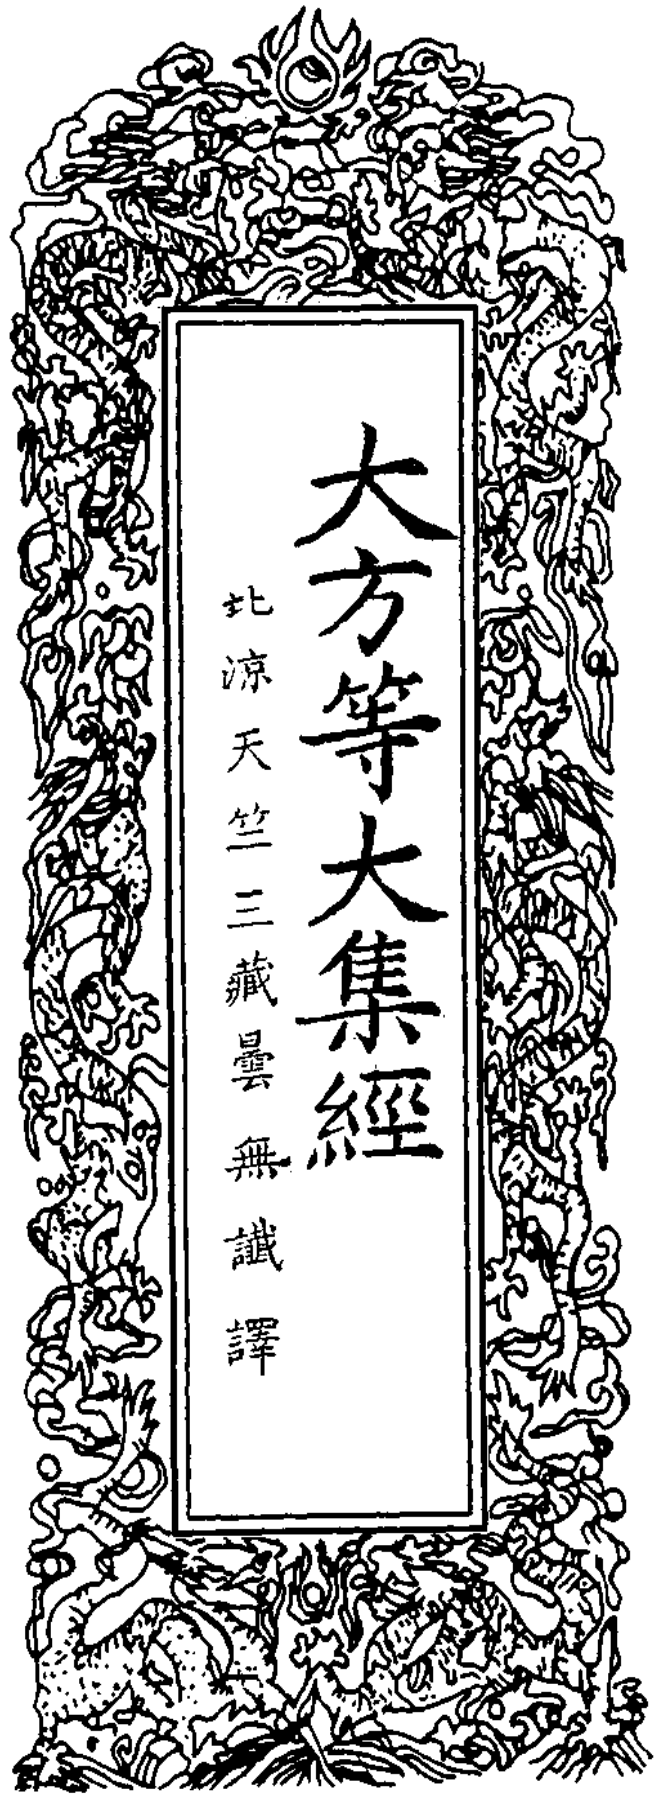 大方等大集經
北涼天竺三藏曇無讖譯